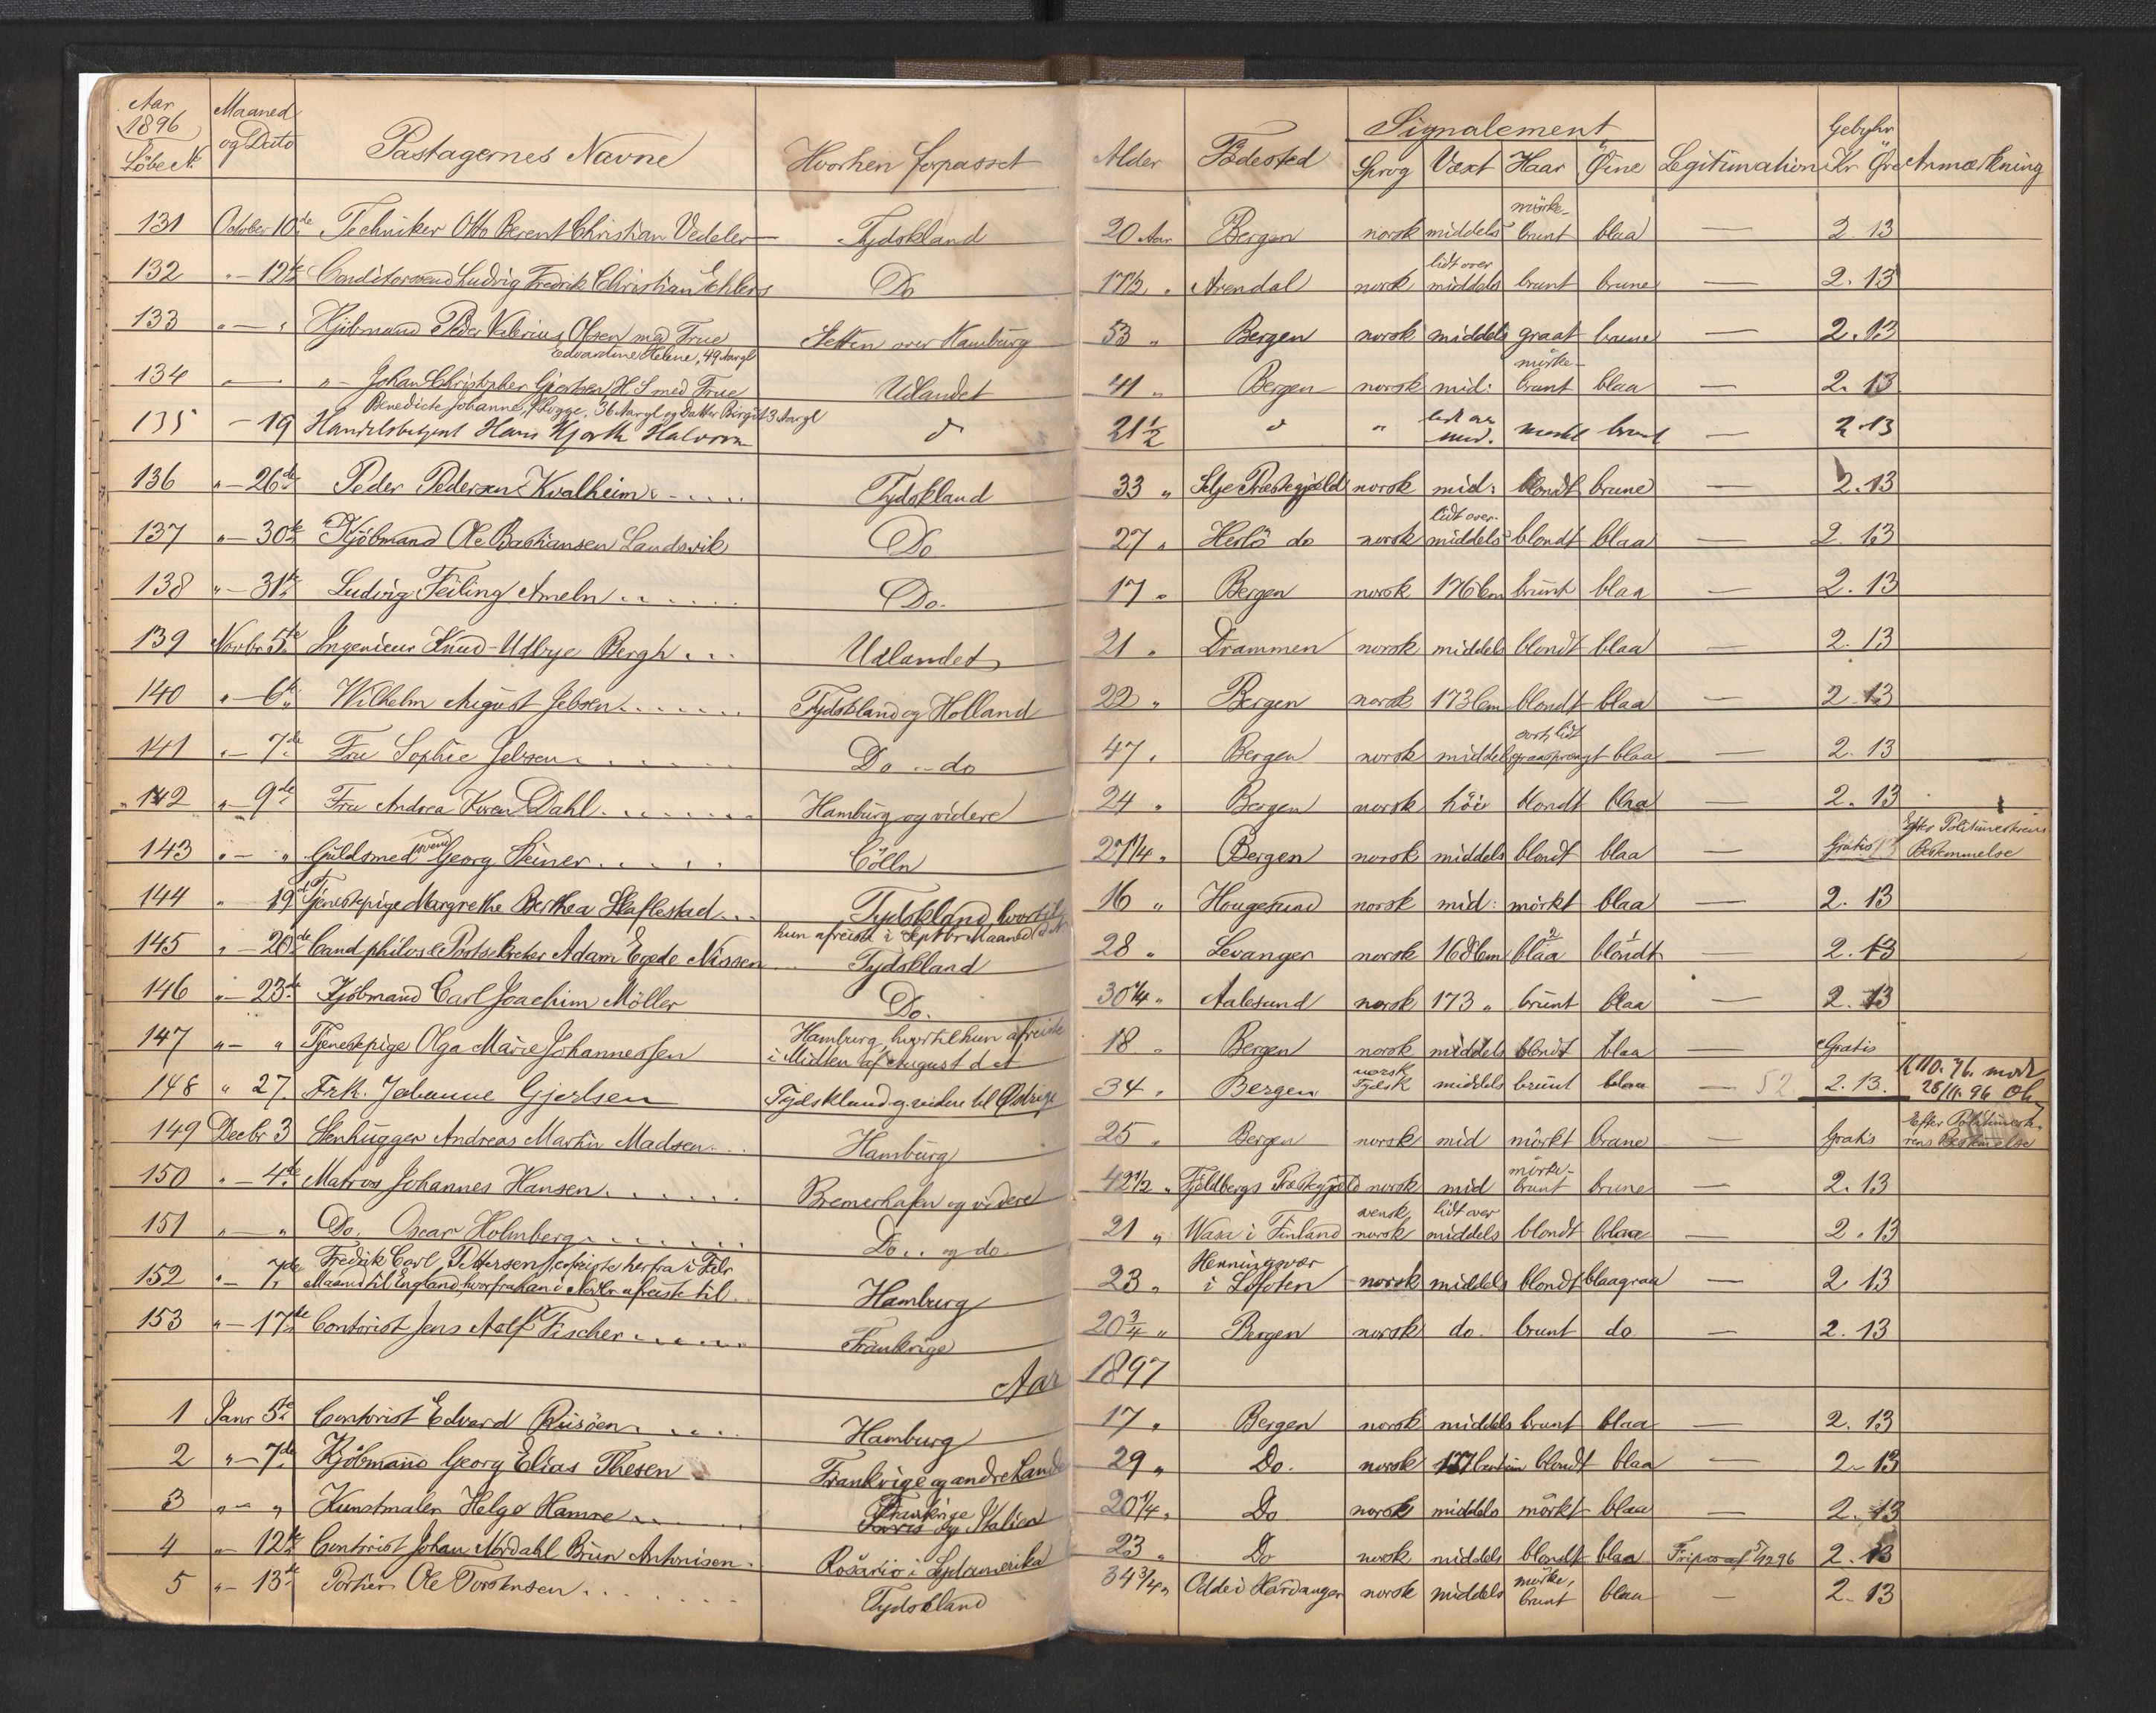 Aar 1896 Löbe № Maaned og Dato Pastagernes Navne Hvorhen forpasset Alder Födested Signalement Sprog Vext Haar Öine Legitimation Gebyhr Kr Öre Anmærkning
131 October 10de Techniker Otto Berent Christian Vedeler Tydskland 20 Aar Bergen norsk middels mörke- brunt blaa — 2. 13
132 " — 12te Conditorsvend Ludvig Fredrik Christian Ehlers Do 17 1/2 " Arendal norsk lidt over middels brunt brune — 2. 13
133 " — " Kjöbmand Peder Valerius Olsen med Frue Edvardine Helene, 49 Aargl over Hamburg 53 " Bergen norsk middels graat brune — 2. 13
134 " — " Johan Christopher Gjertsen H. S med Frue Benedicte Johanne, 36 Aargl og Datter Birgit 3 Aargl Udlandet 41 " Bergen norsk mid: mörke- brunt blaa — 2. 13
135 — 19 Hans Hjorth 21 1/2 " mörkt brunt — 2. 13
136 " — 26de Peder Pedersen Kvalheim . . . . Tydskland 33 " Selje Præstegjæld norsk mid: blondt brune — 2. 13
137 " — 30te Kjöbmand Ole Bastiansen Landsvik Do 27 " Herlö do norsk lidt over middels blondt blaa — 2. 13
138 " — 31te Ludvig Feiling Ameln . . . . . . Do. 17 " Bergen norsk 176 Cm brunt blaa — 2. 13
139 Novbr 5te Ingenieur Knud Udbye Bergh . . . Udlandet 21 " Drammen norsk middels blondt blaa — 2. 13
140 " — 6te Wilhelm August Jebsen . . . . . . Tydskland og Holland 22 " Bergen norsk 173 Cm blondt blaa — 2. 13
141 " — 7de Fru Sophie Jebsen . . . . . . Do — do 47 " Bergen norsk middels sort, lidt graasprængt blaa — 2. 13
142 " — 9de Fru Andrea Dahl . . . . . . Hamburg og videre 24 " Bergen norsk höi blondt blaa — 2. 13
143 " — " Guldsmedsvend Georg Steiner . . . . . Cölln 27 1/4 " Bergen norsk middels blondt blaa — Gratis Efter Politimesterens Bestemmelse
144 " 19de Tjenestepige Margrethe Berthea Skaflestad . . Tydskland hvortil hun afreiste i Septbr Maaned d. A. 16 " Hougesund norsk mid: mörkt blaa — 2. 13
145 " — 20de Cand philos & Postsekretær Adam Egede Nissen . . . Tydskland 28 " Levanger norsk 168 Cm blaa 2 blondt 1 — 2. 13
146 " — 23de Kjöbmand Carl Joachim Möller Do. 30 1/4 " Aalesund norsk 173 " brunt blaa — 2. 13
147 " — " Tjenestepige Olga Marie Johannessen Hamburg, hvortil hun afreiste i Midten af August d. A 18 " Bergen norsk middels blondt blaa — Gratis
148 " 27. Frk. Johanne Gjertsen Tydskland og videre til Östrige 34 " Bergen norsk Tydsk middels brunt blaa — 52 2. 13. 110. 76. 28/11 96
149 Decbr 3 Stenhugger Andreas Martin Madsen . . . Hamburg 25 " Bergen norsk mid mörkt brune — Gratis Efter Politimesterens Bestemmelse
150 " — 4de Matros Johannes Hansen . . . . . . Bremerhafen og videre 42 1/2 " Fjeldbergs Præstegjæld norsk mid mörke- brunt brune — 2. 13
151 " — " Do. Oscar Holmberg . . . . . . . Do . . og do 21 " Wasa i Finland svensk norsk lidt over middels blondt blaa — 2. 13
152 " — 7de Fredrik Carl Pettersen, afreiste herfra i Febr Maaned til England, hvorfra han i Novbr afreiste til Hamburg 23 " Henningsvær i Lofoten norsk middels blondt blaagraa — 2 13
153 " — 17de Contorist Jens Adolf Fischer . . . . . Frankrige 20 3/4 " Bergen norsk do. brunt do — 2. 13
Aar 1897
1 Janr 5te Contorist Edvard Riisöen . . . . Hamburg 17 " Bergen norsk middels brunt blaa — 2. 13
2 " — 7de Kjöbmand Georg Elias Thesen Frankrige og andre Lande 29 " Do. norsk 177 blondt blaa — 2. 13
3 " — " Kunstmaler Helge Hamre . . . . . Frankrige Paris og Italien 20 1/4 " Do norsk middels mörkt blaa — 2. 13
4 " — 12te Contorist Johan Nordahl Brun Antonisen . Rosario i Sydamerika 23 " Do norsk middels blondt blaa Fripas af 5/12 96 2. 13
5 " — 13de Portier Ole Torstensen . . . . . . . Tydskland 34 3/4 " Odde i Hardanger norsk middels mörke, brunt blaa — 2. 13